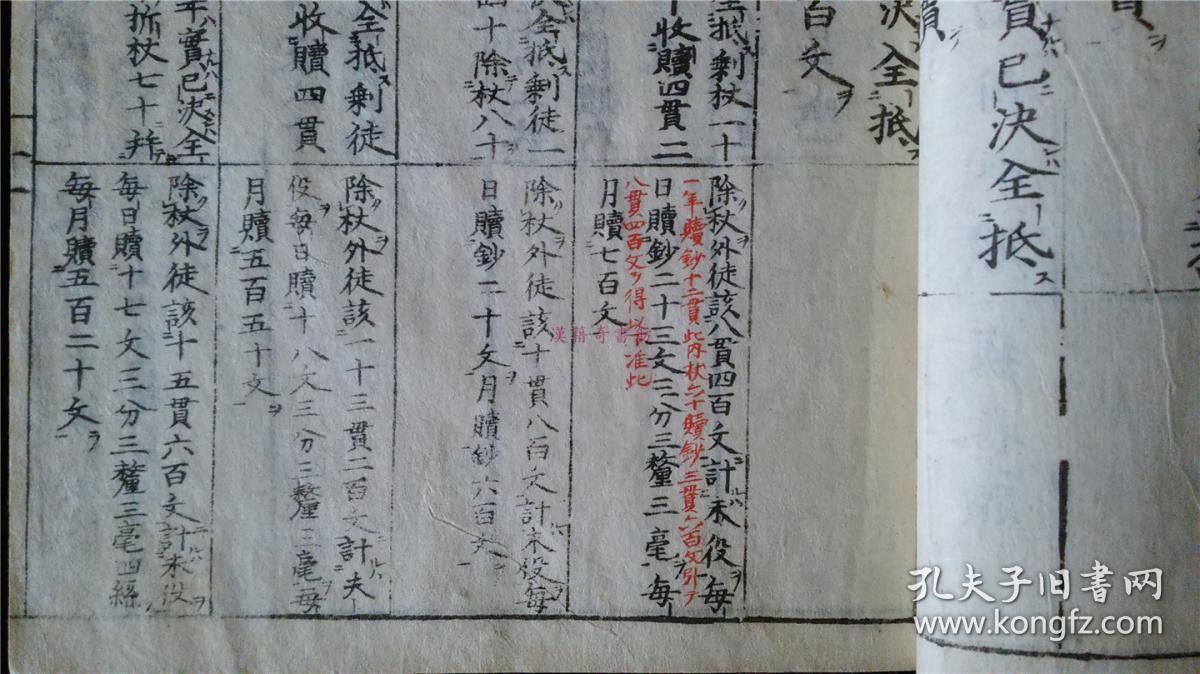 貫
貫已決全抵
贖
決全抵
百文
全抵剩杖一十
收贖四貫二
除杖外徒該八貫四百文計未役每
一年贖鈔十二貫此内杖六十贖鈔三貫六百文引テ
日贖鈔二十三文三分三釐三毫每
八貫四百文ヲ得以下准此
月贖七百文
決全抵剩徒一
四十除杖八十
除杖外徒該十貫八百文計未役每
日贖鈔二十文月贖鈔六百文
全抵剩徒
收贖四貫
除杖外徒該一十三貫二百文計夫
役每日贖十八文三分三釐三毫每
月贖五百五十文
年實已決全
折杖七十并
除杖外徒該十五貫六百文計未役
每日贖十七文三分三釐三毫四絲
每月贖五百二十文
漢籍奇書
孔夫子旧书网
www.kongfz.com